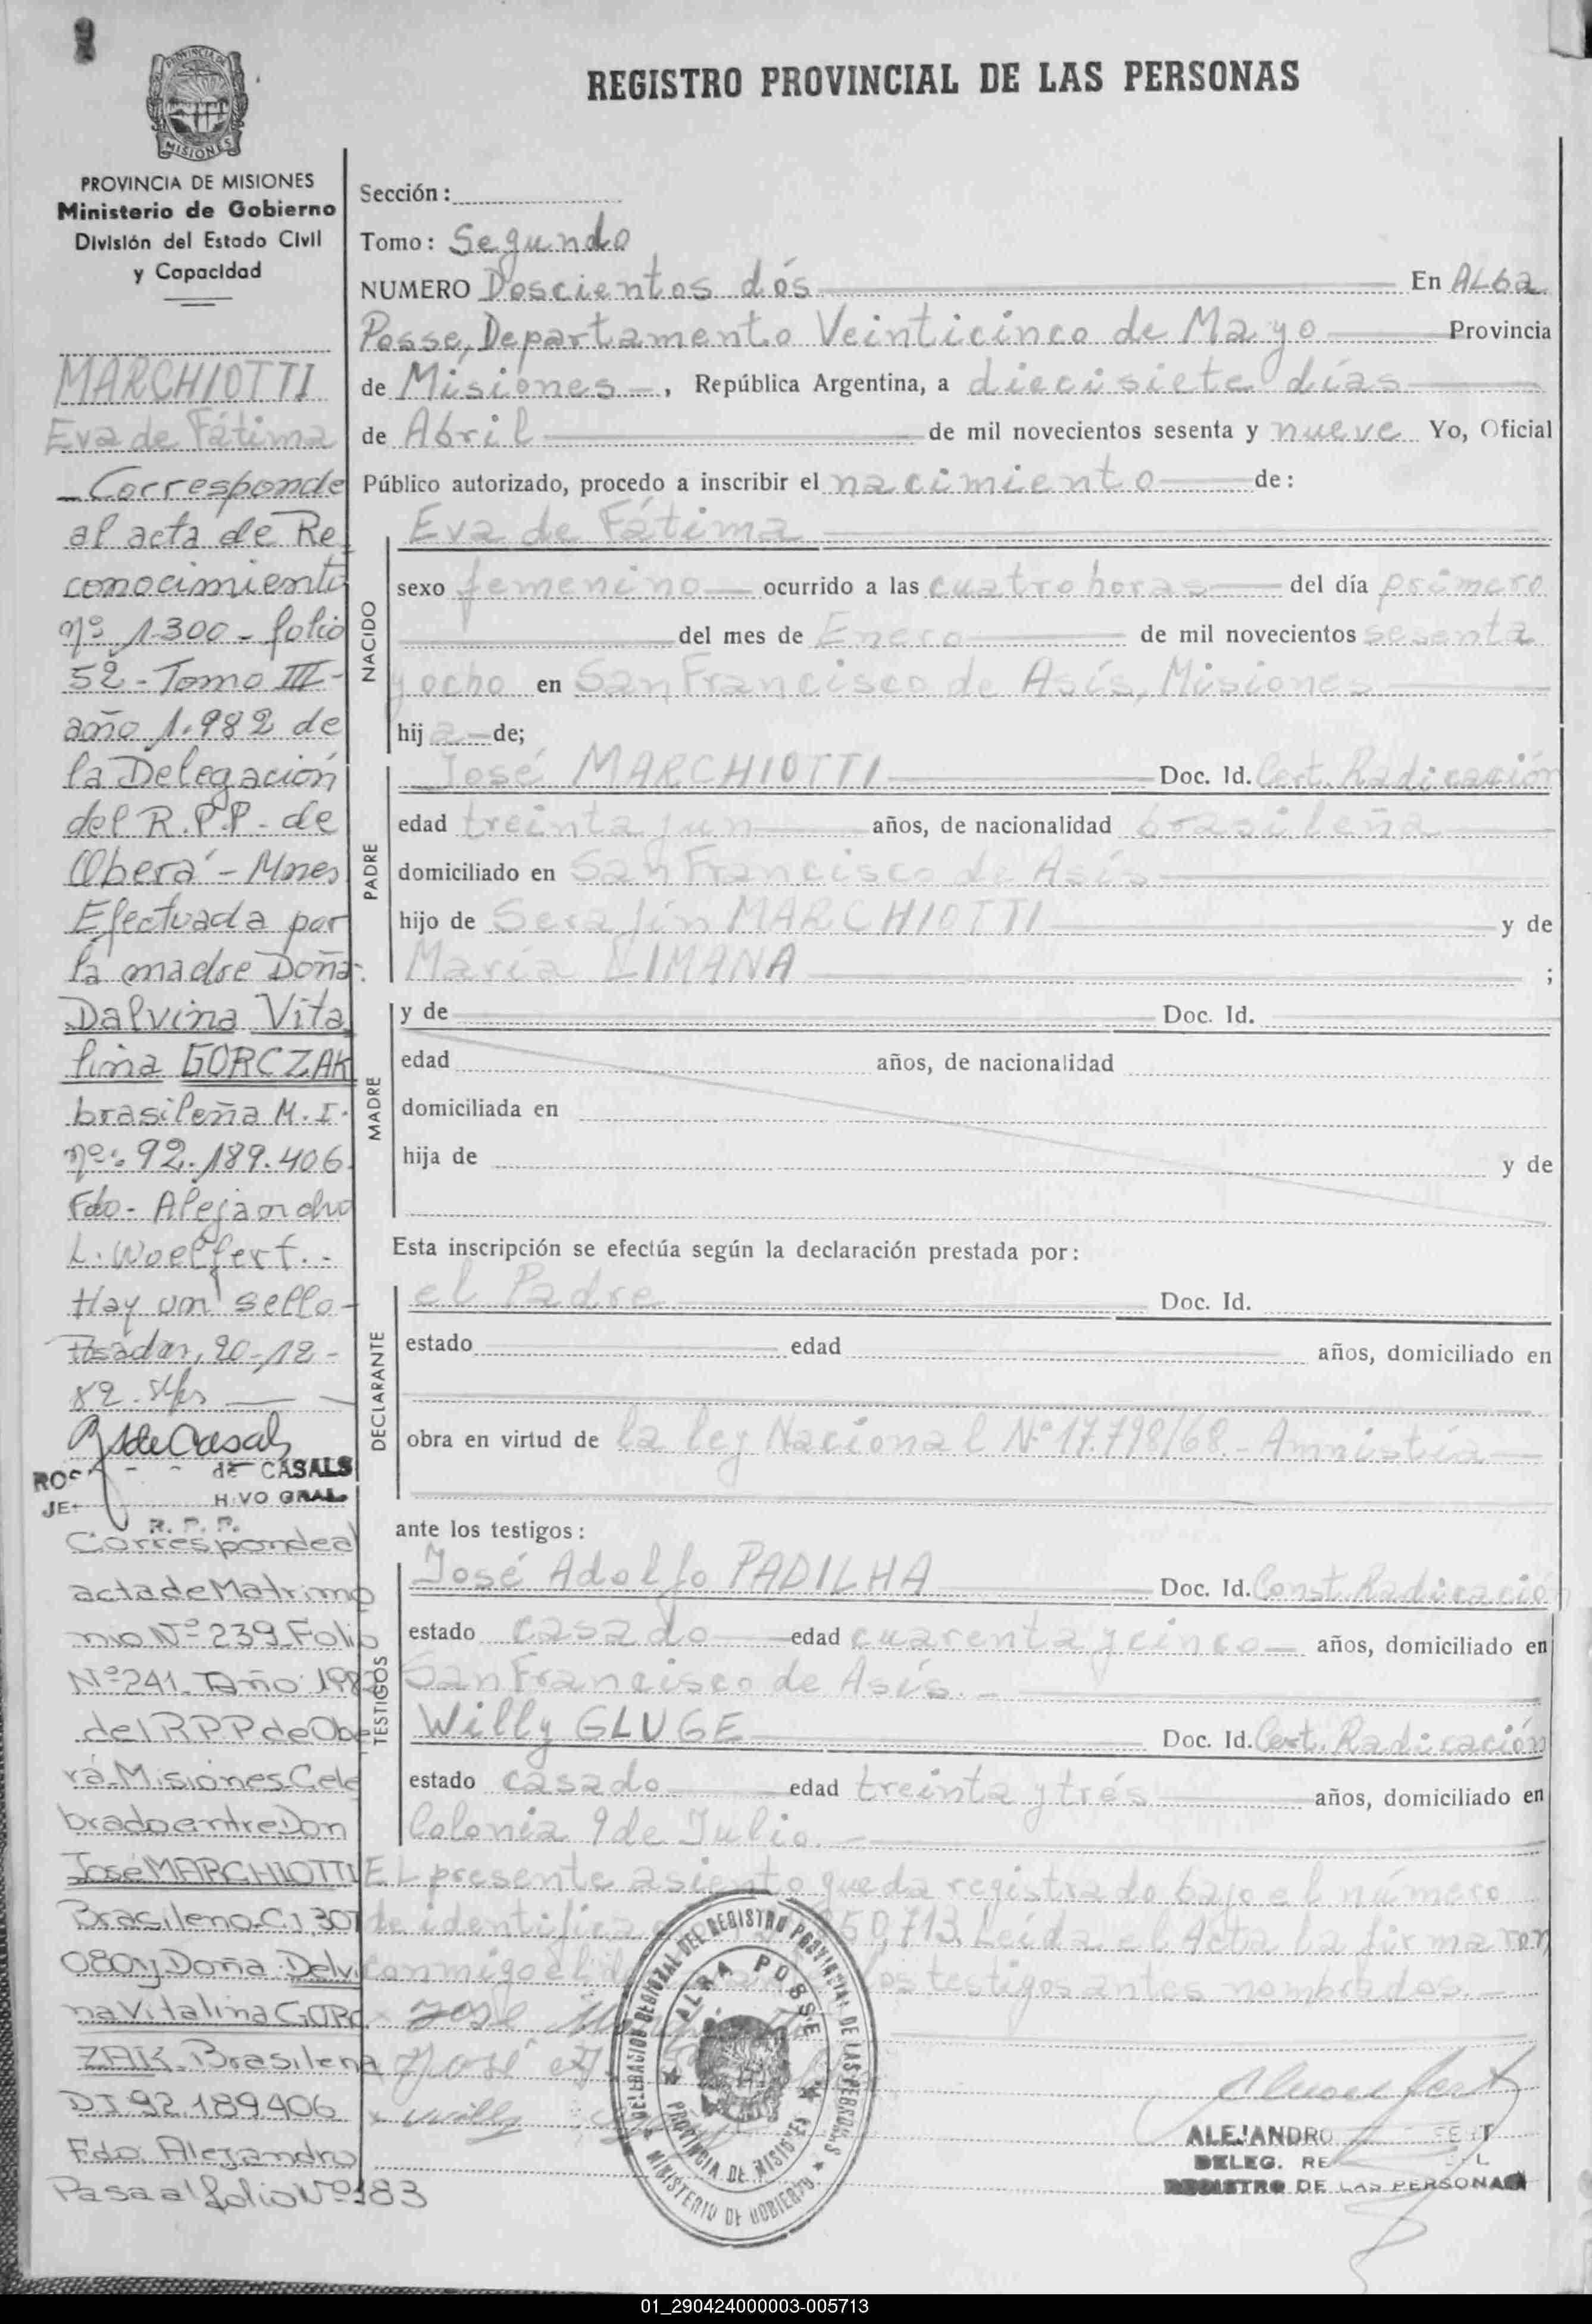 REGISTRO PROVINCIAL DE LAS PERSONAS
PROVINCIA DE MISIONES
MISIONES
PROVINCIA DE MISIONES
Ministerio de Gobierno
División del Estado Civil
y Capacidad
MARCHIOTTI
Eva de Fátima
Corresponde
al acta de Re
conocimiento
nº 1300 - folio
52 - Tomo III -
año 1.982 de
la Delegación
del R.P.P. de
Oberá - Mnes
Efectuada por
la madre Doña
Dalvina Vita
lina GORCZAK
brasileña M.I.
nº: 92.189.406
Fdo - Alejandro
L. Woelfert. -
Hay un sello -
Posadas, 20-12-
82.
de CASALS
R. P. P.
Corresponde al
acta de Matrimo
nio Nº 239 Folio
Nº 241 Año 198
del RPP de Obe
rá Misiones Cele
brado entre Don
José MARCHIOTTI
Brasileno C.I. 301
080 y Doña Delvi
na Vitalina GORC
ZAK - Brasilena
DI 92.189406
Fdo. Alejandro
Pasa al folio Nº 183
Sección:
Tomo: Segundo
NUMERO Doscientos dós En Alba
Posse, Departamento Veinticinco de Mayo Provincia
de Misiones, República Argentina, a diecisiete días
de Abril de mil novecientos sesenta y nueve Yo, Oficial
Público autorizado, procedo a inscribir el nacimiento de:
Eva de Fátima
NACIDO
sexo femenino ocurrido a las cuatro horas del día primero
del mes de Enero de mil novecientos sesenta
y ocho en San Francisco de Asís, Misiones
hija de;
PADRE
José MARCHIOTTI Doc. Id. Cert. Radicación
edad treinta y un años, de nacionalidad brasileña
domiciliado en San Francisco de Asís
hijo de Serafín MARCHIOTTI y de
María LIMANA ;
MADRE
y de Doc. Id.
edad años, de nacionalidad
domiciliada en
hija de y de
Esta inscripción se efectúa según la declaración prestada por:
DECLARANTE
el Padre Doc. Id.
estado edad años, domiciliado en
obra en virtud de la ley Nacional Nº 17.798/68 - Amnistía
ante los testigos:
TESTIGOS
José Adolfo PADILHA Doc. Id. Const. Radicació
estado casado edad cuarenta y cinco años, domiciliado en
San Francisco de Asís. -
Willy GLUGE Doc. Id. Cert. Radicación
estado casado edad treinta y trés años, domiciliado en
Colonia 9 de Julio. -
El presente asiento queda registrado bajo el número
de identifica 850,713. Leída el Acta la firmaron
conmigo el los testigos antes nombrados. -
José
José
Willy
DELEGACION REGIONAL DEL REGISTRO PROVINCIAL DE LAS PERSONAS
MINISTERIO DE GOBIERNO
ALBA POSSE
PROVINCIA DE MISIONES
ALEJANDRO
DELEG. RE
REGISTRO DE LAS PERSONAS
01_290424000003-005713